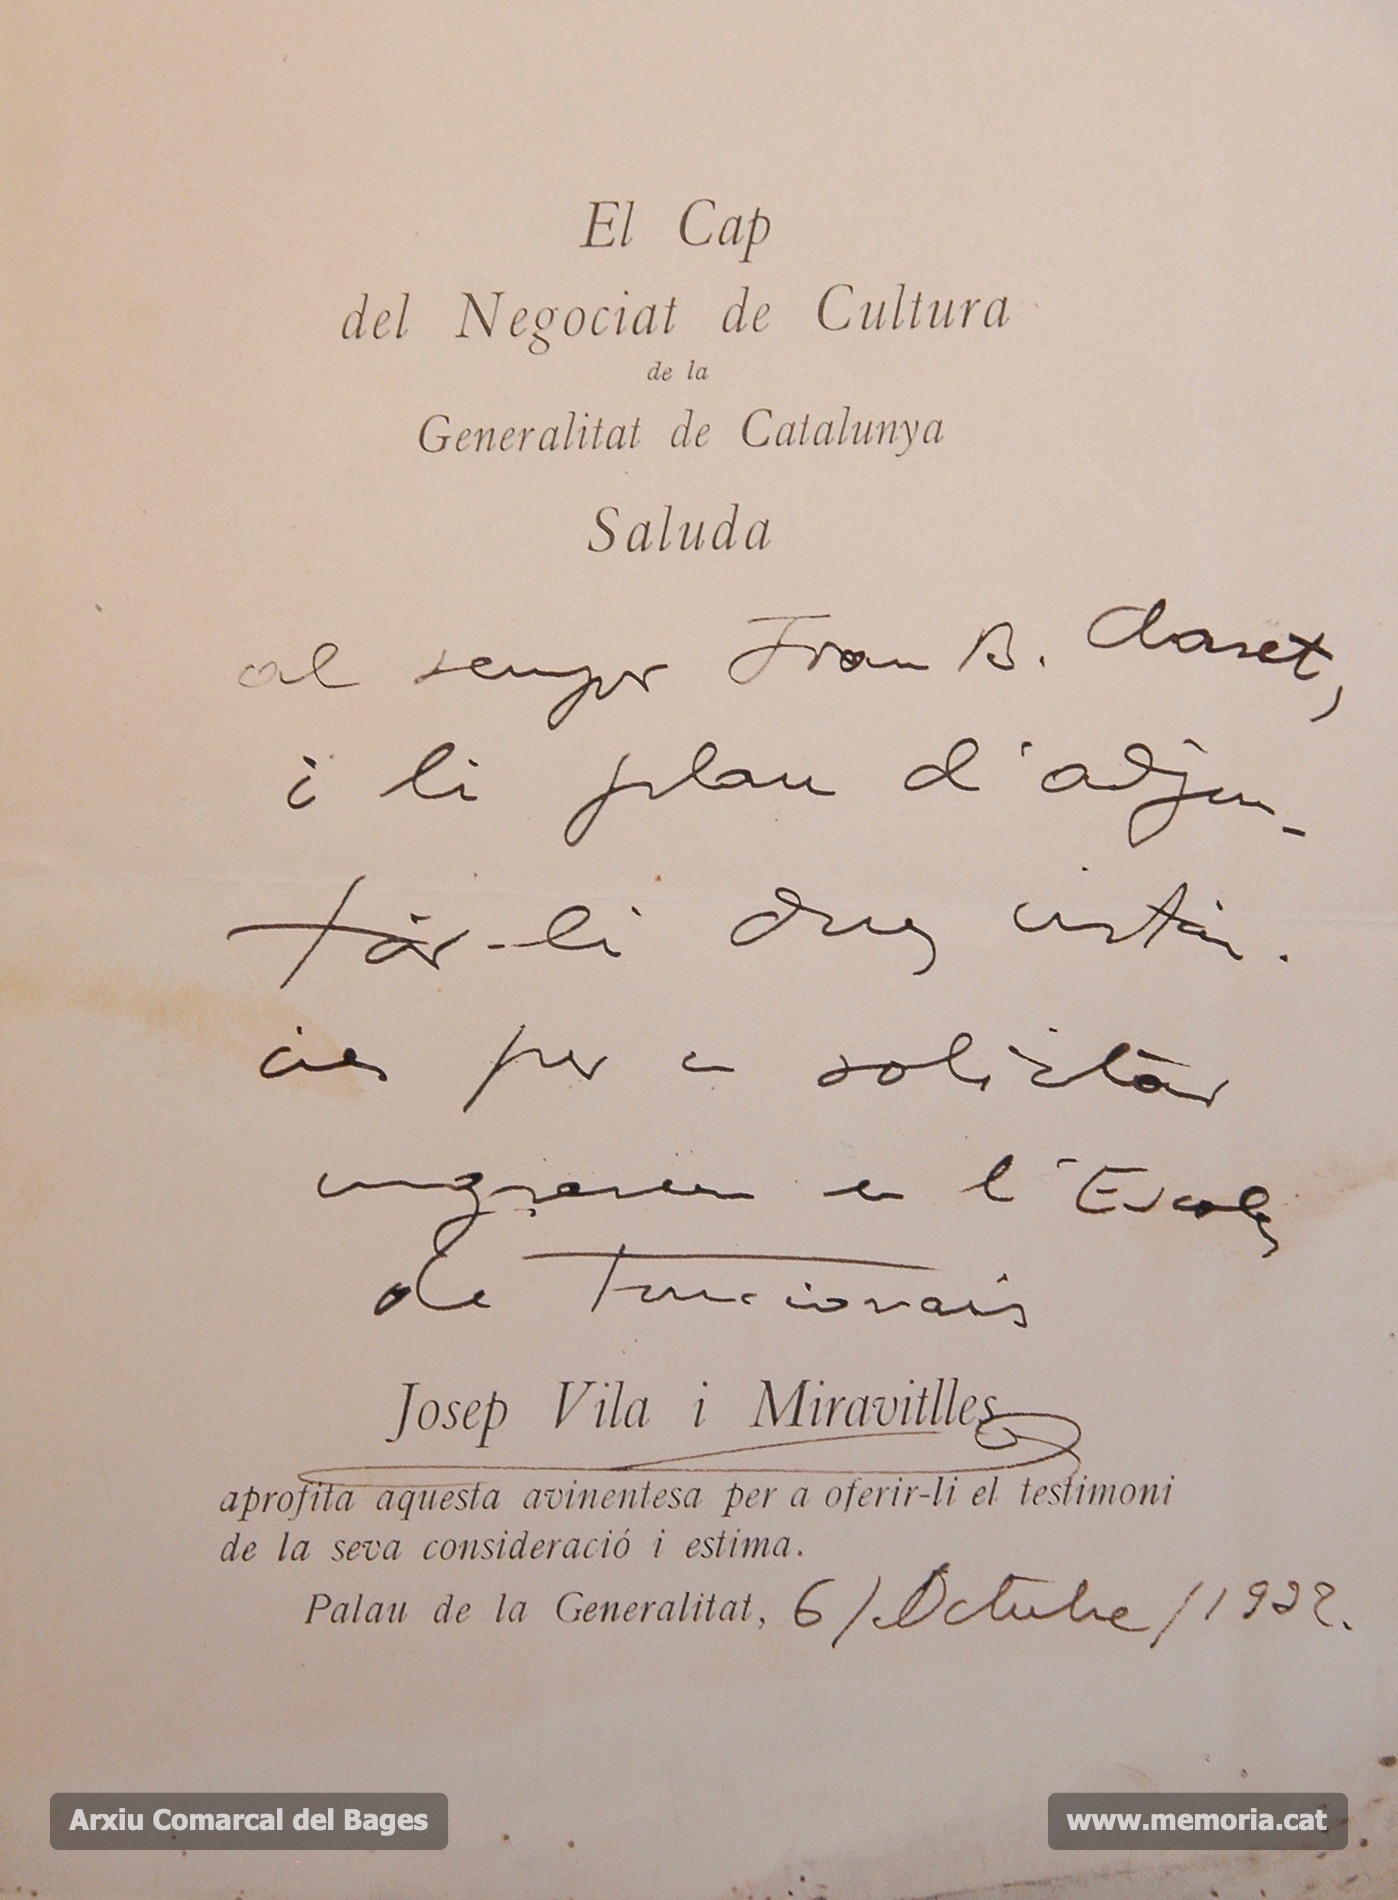 El Cap
del Negociat de Cultura
de la
Generalitat de Catalunya
Saluda
al senyor Joan B. Claset,
i li plau d'adjun-
tar-li dues instàn-
cies per a sol·licitar
ingressar en l'Escola
de Funcionaris
Josep Vila i Miravitlles
aprofita aquesta avinentesa per a oferir-li el testimoni
de la seva consideració i estima.
Palau de la Generalitat, 6/Octubre/1932.
Arxiu Comarcal del Bages
www.memoria.cat